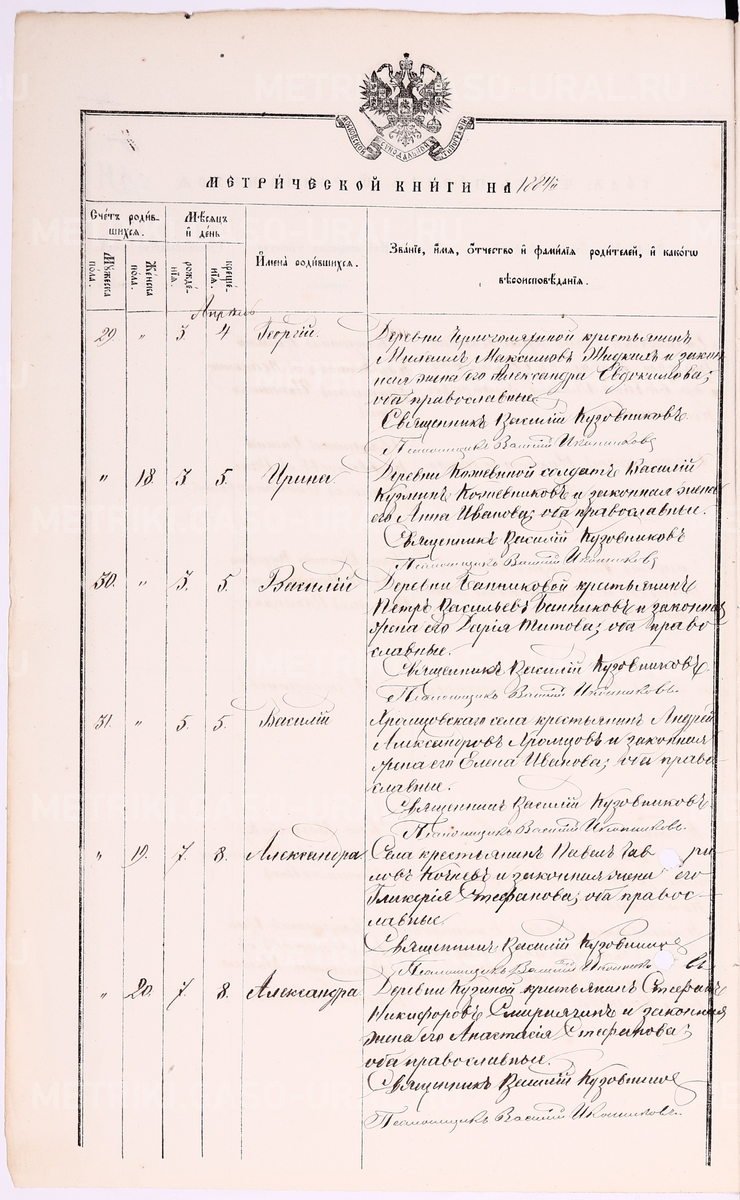 МОСКОВСКОЙ СѴНОДАЛЬНОЙ ТИПОГРАФІИ
МЕТРИ́ЧЕСКОЙ КНИ́ГИ НА 1884й
Сче́тъ роди́вшихся.
Мꙋ́жеска по́ла.
Же́нска по́ла.
Мѣ́сяцъ и҆ де́нь
рожде́нїѧ.
креще́нїѧ.
И҆мена̀ роди́вшихсѧ.
Зва́нїе, и҆́мѧ, ѻ҆́тчество и҆ фамі́лїѧ роди́телей, и҆ како́гѡ
вѣроисповѣ́данїѧ.
Апрѣль
29 " 3 4 Георгій. Деревни Черногомяхиной крестьянинъ
Михаилъ Максимовъ Жидкихъ и закон
ная жена его Александра Евдокимова;
оба православные.
Священникъ Василій Кузовниковъ.
Псаломщикъ Василій Иконниковъ
" 18. 3 5. Ирина. Деревни Кожевиной солдатъ Василій
Кузминъ Кожевниковъ и законная жена
его Анна Иванова; оба православные.
Священникъ Василій Кузовниковъ
Псаломщикъ Василій Иконниковъ
30. " 3. 5. Василій Деревни Банниковой крестьянинъ
Петръ Васильевъ Банниковъ и законная
жена его Дарія Титова; оба право
славные.
Священникъ Василій Кузовниковъ.
Псаломщикъ Василій Иконниковъ.
31. " 5. 5. Василій Хромцовскаго села крестьянинъ Андрей
Александровъ Хромцовъ и законная
жена его Елена Иванова; оба право
славные.
Священникъ Василій Кузовниковъ
Псаломщикъ Василій Иконниковъ.
" 19. 7. 8. Александра. Села крестьянинъ Павелъ Гав ри
ловъ Кочневъ и законная жена его
Гликерія Стефанова; оба правос-
лавные.
Священникъ Василій Кузовников
Псаломщикъ Василій Иконников въ
" 20. 7. 8. Александра. Деревни Кузиной крестьянинъ Стефанъ
Никифоровъ Смирнягинъ и законная
жена его Анастасія Стефанова;
оба православные.
Священникъ Василій Кузовников
Псаломщикъ Василій Иконниковъ.